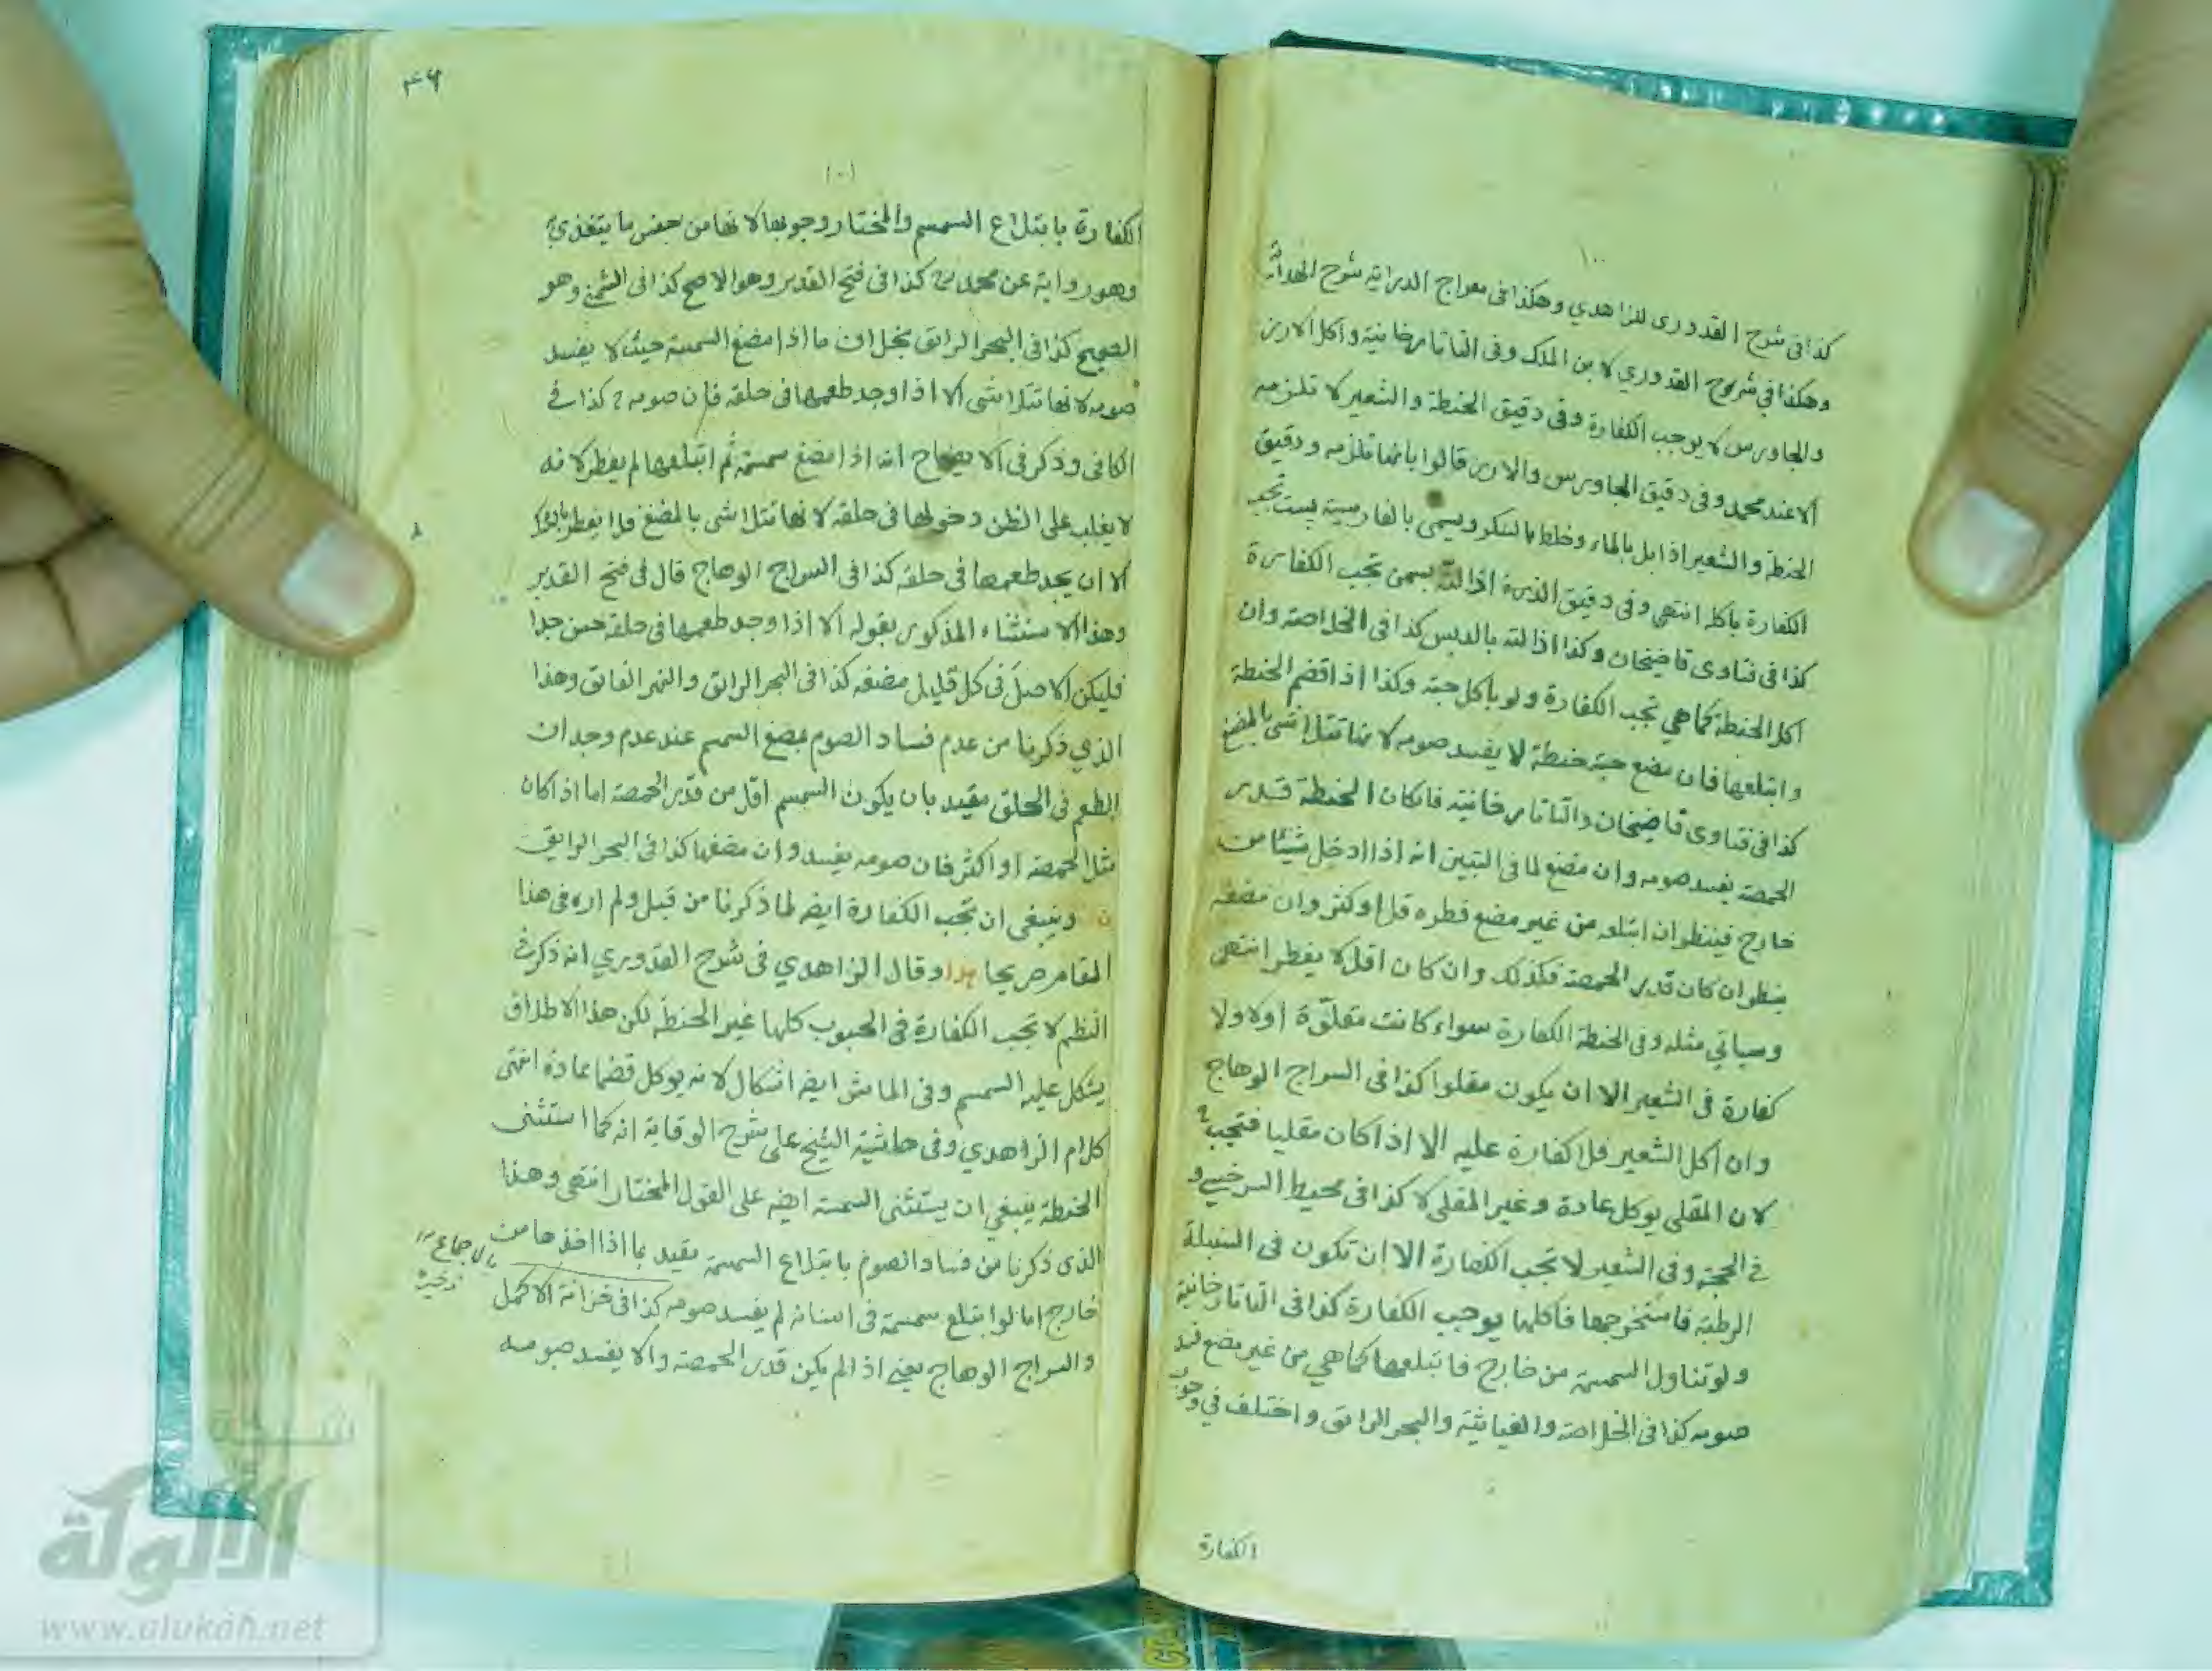 ١٠٠
كذا فى شرح القدورى للزاهدي وهكذا فى معراج الدراية شرح الهداية
وهكذا في شرح القدوري لابن الملك وفى التاتارخانية واكل الارز
والجاورس لا يوجب الكفارة وفى دقيق الحنطة والشعير لا تلزمه
الا عند محمد وفى دقيق الجاورس والارز قالوا بانها تلزمه ودقيق
الحنطة والشعير اذا بل بالماء وخلط بالسكر ويسمى بالفارسية پست تجب
الكفارة باكله انتهى وفى دقيق الذرة اذا لته بسمن تجب الكفارة
كذا فى فتاوى قاضيخان وكذا اذا لته بالدبس كذا فى الخلاصة وان
اكل الحنطة كما هي تجب الكفارة ولو باكل حبة وكذا اذا قضم الحنطة
وابتلعها فان مضغ حبة حنطة لا يفسد صومه لانها تتلاشى بالمضغ
كذا فى فتاوى قاضيخان والتاتارخانية فان كان الحنطة قدر
الحمصة يفسد صومه وان مضغ لما فى التبيين انه اذا ادخل شيئا من
خارج فينظر ان ابتلعه من غير مضغ فطره قل او كثر وان مضغه
ينظر ان كان قدر الحمصة فكذلك وان كان اقل لا يفطر انتهى
وسياتي مثله وفى الحنطة الكفارة سواء كانت مقلوّة او لا ولا
كفارة فى الشعير الا ان يكون مقلوا كذا فى السراج الوهاج
وان اكل الشعير فلا كفارة عليه الا اذا كان مقليا فتجب
لان المقلى يوكل عادة وغير المقلى لا كذا فى محيط السرخسي و
في الحجة وفى الشعير لا تجب الكفارة الا ان تكون فى السنبلة
الرطبة فاستخرجها فاكلها يوجب الكفارة كذا فى التاتارخانية
ولو تناول السمسمة من خارج فابتلعها كما هي من غير مضغ فسد
صومه كذا فى الخلاصة والغياثية والبحر الرائق واختلف في وجوب
الكفارة
١٠١
الكفارة بابتلاع السمسم والمختار وجوبها لانها من جنس ما يتغذى به
وهو رواية عن محمد كذا فى فتح القدير وهو الاصح كذا فى الشمني وهو
الصحيح كذا فى البحر الرائق بخلاف ما اذا مضغ السمسمة حيث لا يفسد
صومه لانها تتلاشى الا اذا وجد طعمها فى حلقه فان صومه كذا في
الكافى وذكر فى الايضاح انه اذا مضغ سمسمة ثم ابتلعها لم يفطر لانه
لا يغلب على الظن دخولها فى حلقه لانها تتلاشى بالمضغ فلا يفطر بالشك
الا ان يجد طعمها فى حلقه كذا فى السراج الوهاج قال فى فتح القدير
وهذا الاستثناء المذكور بقوله الا اذا وجد طعمها فى حلقه حسن جدا
فليكن الاصل فى كل قليل مضغه كذا فى البحر الرائق والنهر الفائق وهذا
الذي ذكرنا من عدم فساد الصوم بمضغ السمسم عند عدم وجدان
الطعم فى الحلق مقيد بان يكون السمسم اقل من قدر الحمصة اما اذا كان
مثل الحمصة او اكثر فان صومه يفسد وان مضغها كذا فى البحر الرايق
وينبغى ان تجب الكفارة ايضه لما ذكرنا من قبل ولم اره فى هذا
المقام صريحا هذا وقال الزاهدي فى شرح القدوري انه ذكر في
النظم لا تجب الكفارة فى الحبوب كلها غير الحنطة لكن هذا الاطلاق
يشكل عليه السمسم وفى الماش ايضه اشكال لانه يوكل قضما عادة انتهى
كلام الزاهدي وفى حاشية الشيخ على شرح الوقاية انه كما استثنى
الحنطة ينبغي ان يستثنى السمسمة ايضه على القول المختار انتهى وهذا
الذى ذكرنا من فساد الصوم بابتلاع السمسمة مقيد بما اذا اخذها من
بالاجماع ١٢
ذخيره
خارج اما لو ابتلع سمسمة فى اسنانه لم يفسد صومه كذا فى خزانة الاكمل
والسراج الوهاج يعني اذا لم يكن قدر الحمصة والا يفسد صومه
شبكة
الألوكة
www.alukah.net